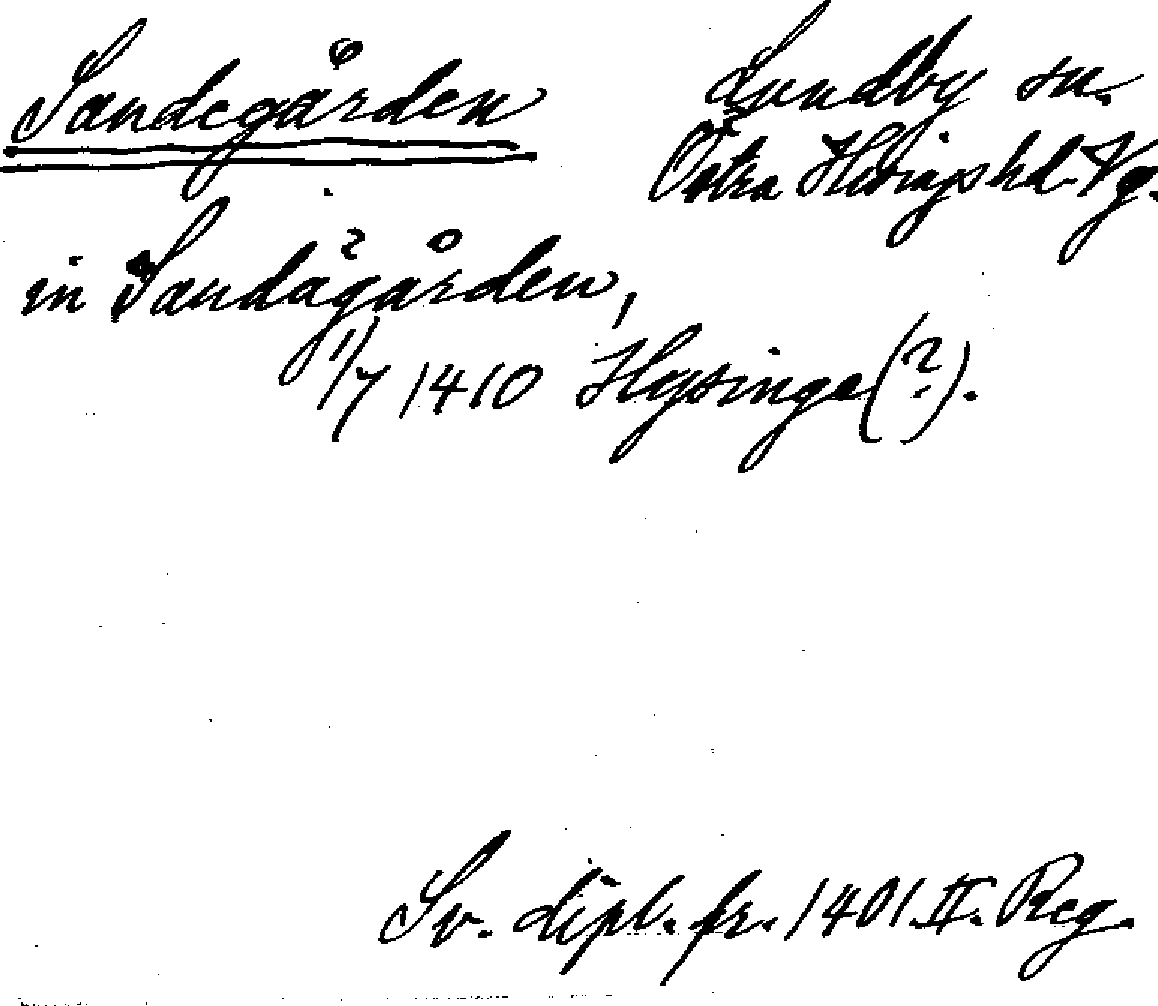 Sandegården
Lundby sn.
Östra Hisings hd. Vg.
in Sandågården,
1/7 1410 Hysinge (?).
Sv. dipl. fr. 1401. II. Reg.